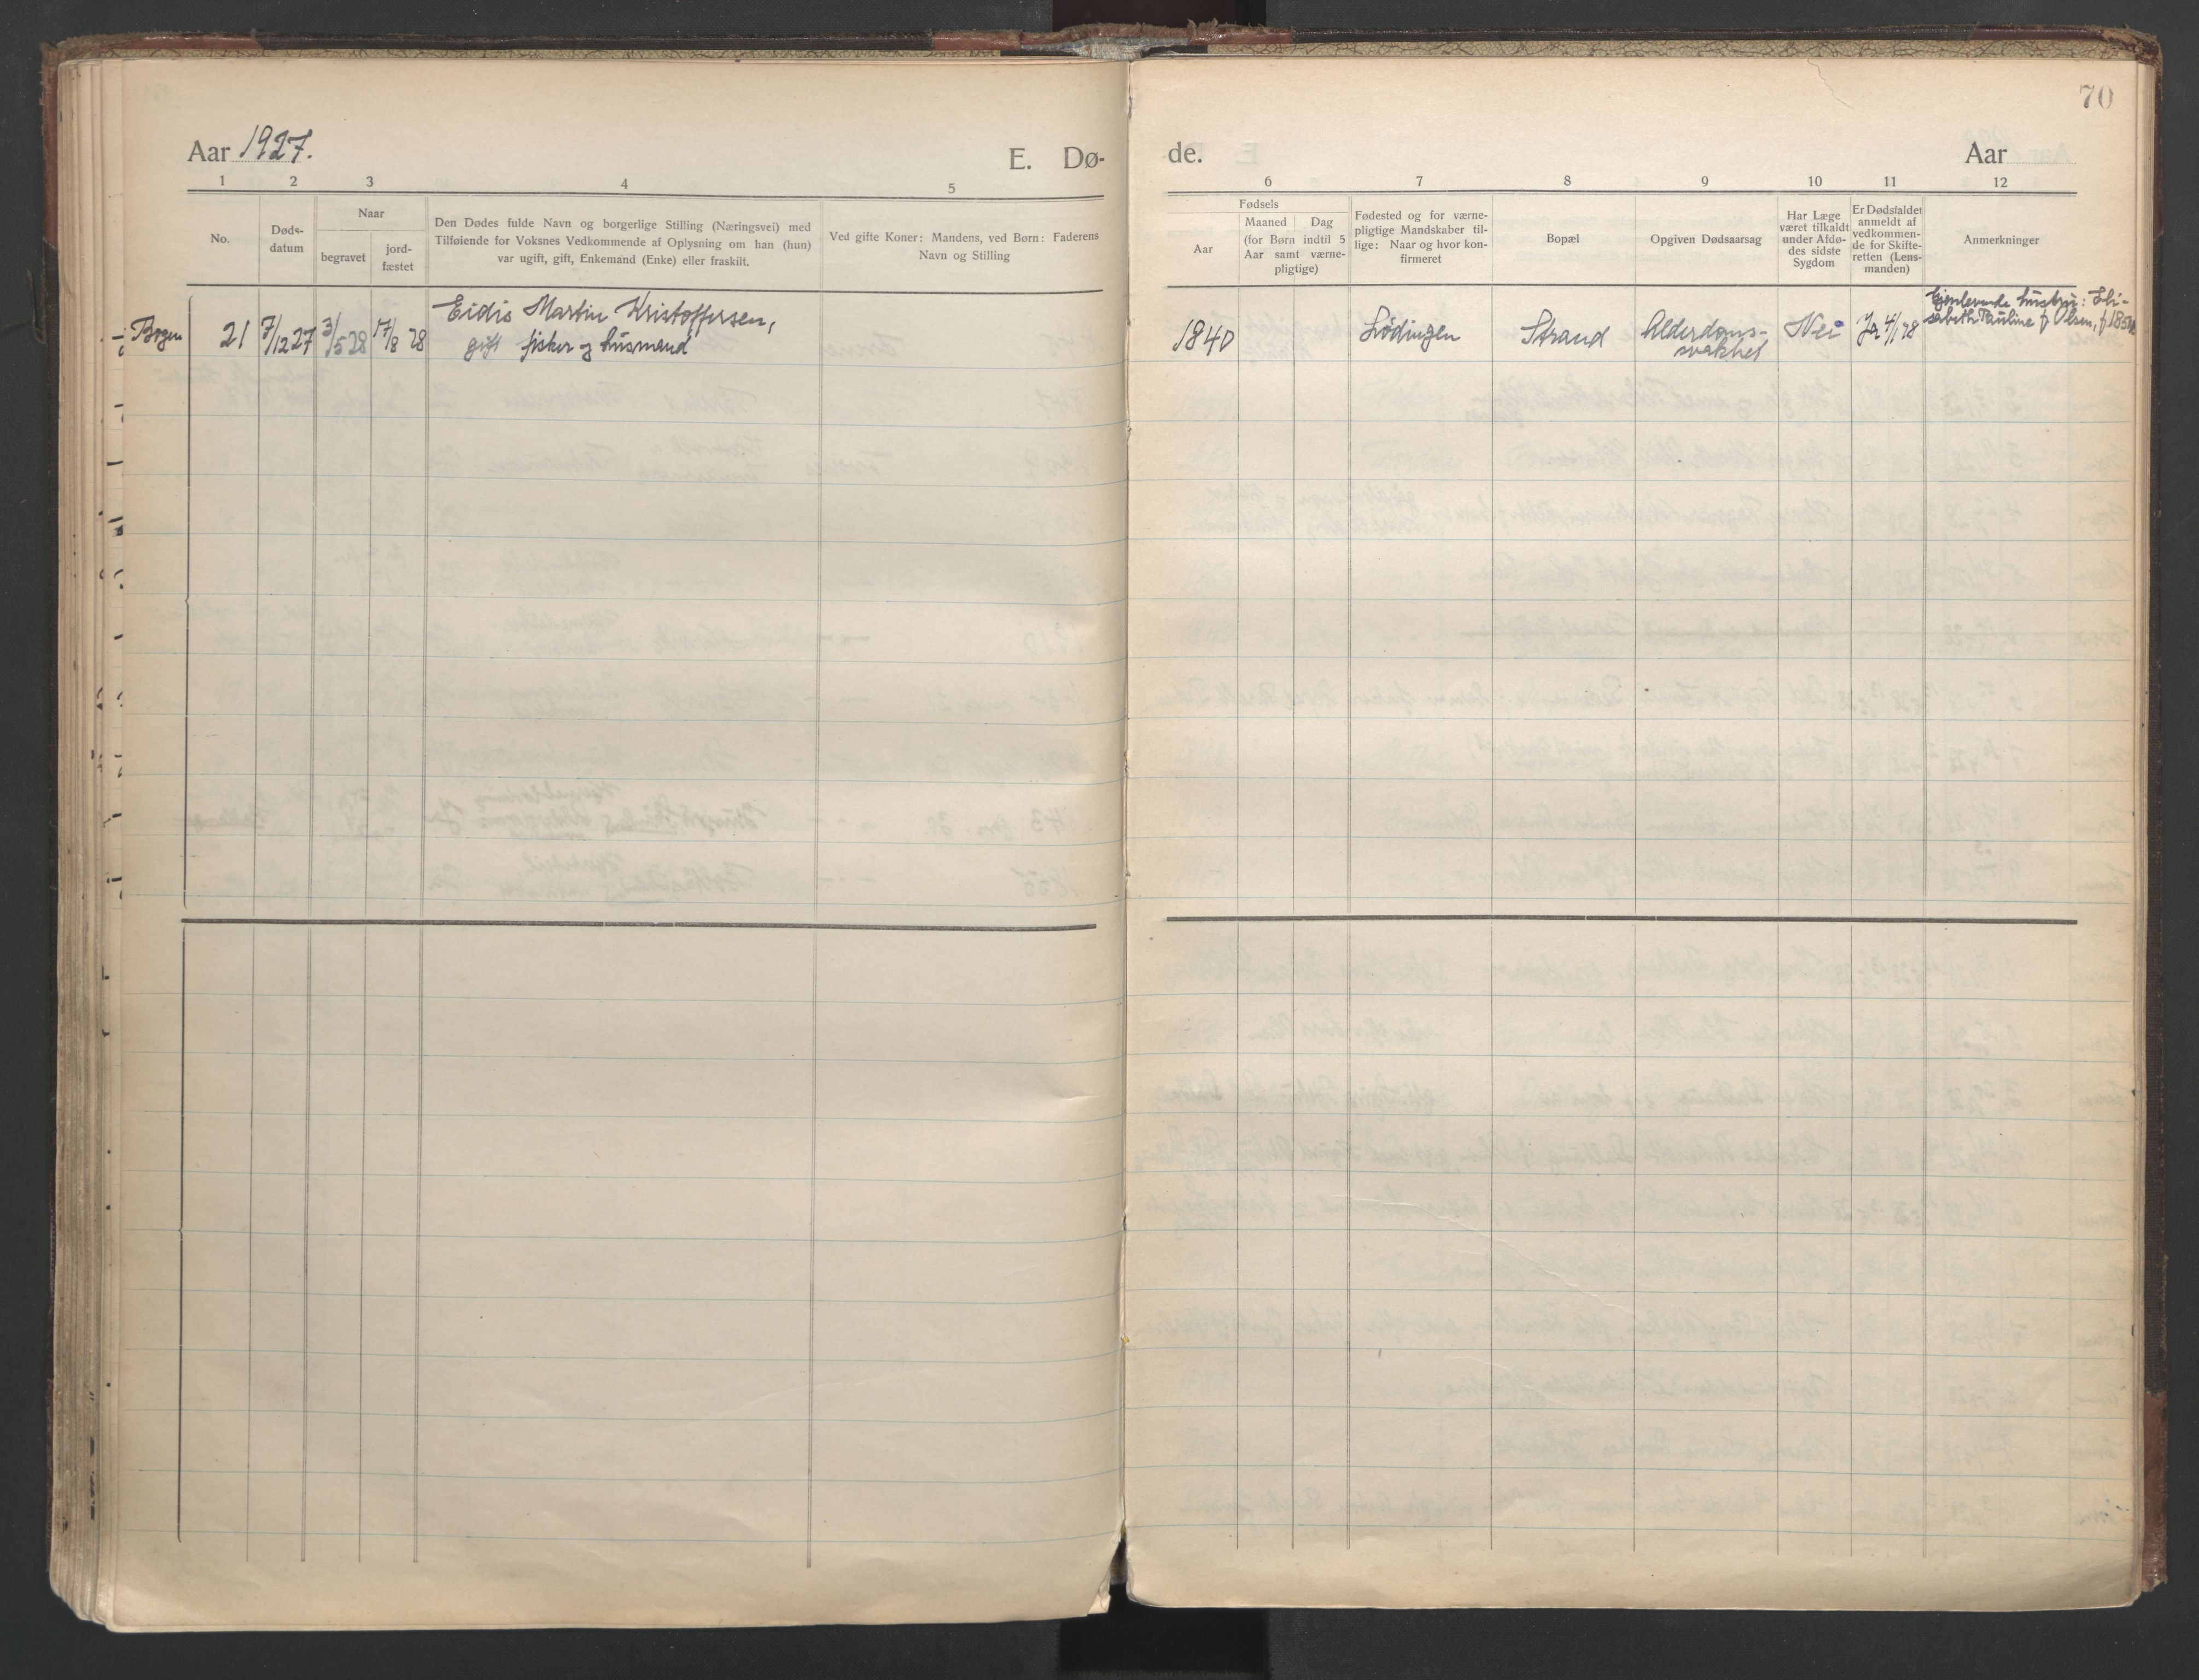 70
Aar 1927.
E. Dø-
de.
Aar
1 2 3 4 5
6 7 8 9 10 11 12
No.
Døds-
datum
Naar
begravet
jord-
fæstet
Den Dødes fulde Navn og borgerlige Stilling (Næringsvei) med
Tilføiende for Voksnes Vedkommende af Oplysning om han (hun)
var ugift, gift, Enkemand (Enke) eller fraskilt.
Ved gifte Koner: Mandens, ved Børn: Faderens
Navn og Stilling
Fødsels
Aar
Maaned
Dag
(for Børn indtil 5
Aar samt værne-
pligtige)
Fødested og for værne-
pligtige Mandskaber til-
lige: Naar og hvor kon-
firmeret
Bopæl
Opgiven Dødsaarsag
Har Læge
været tilkaldt
under Afdø-
des sidste
Sygdom
Er Dødsfaldet
anmeldt af
vedkommen-
de for Skifte-
retten (Lens-
manden)
Anmerkninger
Bogen
21
7/12 27
3/5 28
17/8 28
Eidis Martin Kristoffersen,
gift fisker og husmand
1840
Lødingen
Strand
Alderdoms-
svakhet
Nei
Ja 4/1 28
Gjenlevende hustru: Eli-
sabeth Pauline f Olsen,